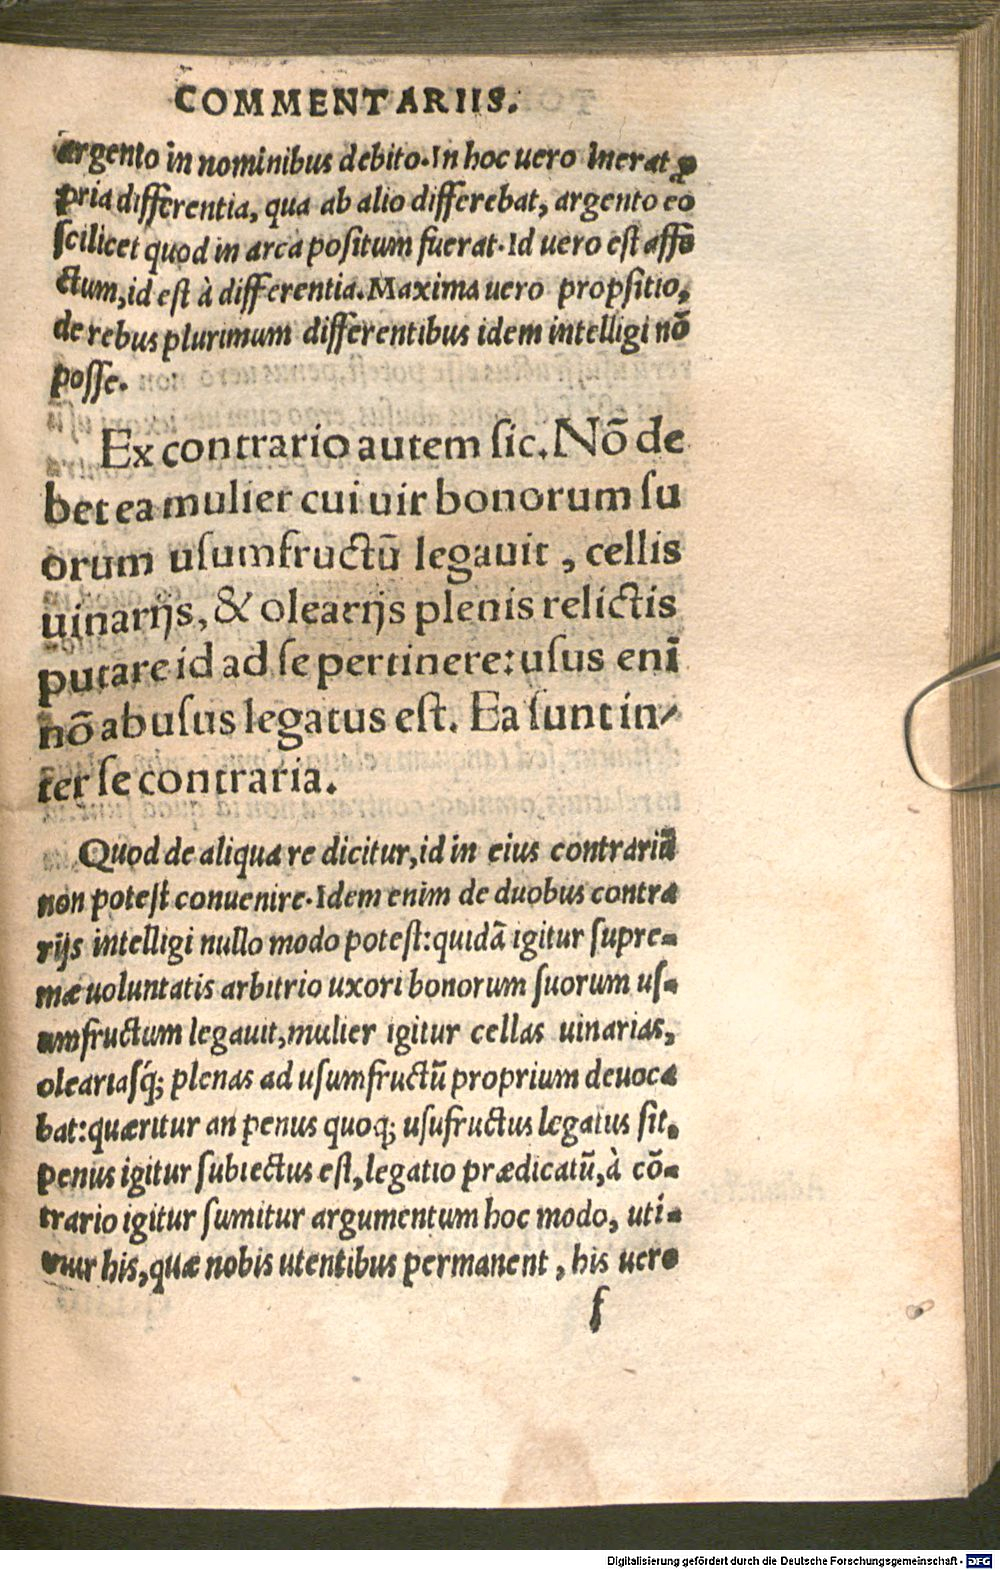 COMMENTARIIS.
argento in nominibus debito. In hoc uero inerat ꝓ
pria differentia, qua ab alio differebat, argento eo
scilicet quod in arca positum fuerat. Id uero est affe
ctum, id est à differentia. Maxima uero propsitio,
de rebus plurimum differentibus idem intelligi nō
posse.
Ex contrario autem sic. Nō de
bet ea mulier cui uir bonorum su
orum usumfructū legauit, cellis
uinarijs, & olearijs plenis relictis
putare id ad se pertinere: usus enī
nō abusus legatus est. Ea sunt in-
ter se contraria.
Quod de aliqua re dicitur, id in eius contrariū
non potest conuenire. Idem enim de duobus contra
rijs intelligi nullo modo potest: quidā igitur supre-
mæ uoluntatis arbitrio uxori bonorum suorum us-
umfructum legauit, mulier igitur cellas uinarias,
oleariasq́; plenas ad usumfructū proprium deuoca
bat: quæritur an penus quoq; usufructus legatus sit.
penus igitur subiectus est, legatio prædicatū, à cō-
trario igitur sumitur argumentum hoc modo, uti-
mur his, quæ nobis utentibus permanent, his uero
f
Digitalisierung gefördert durch die Deutsche Forschungsgemeinschaft - DFG